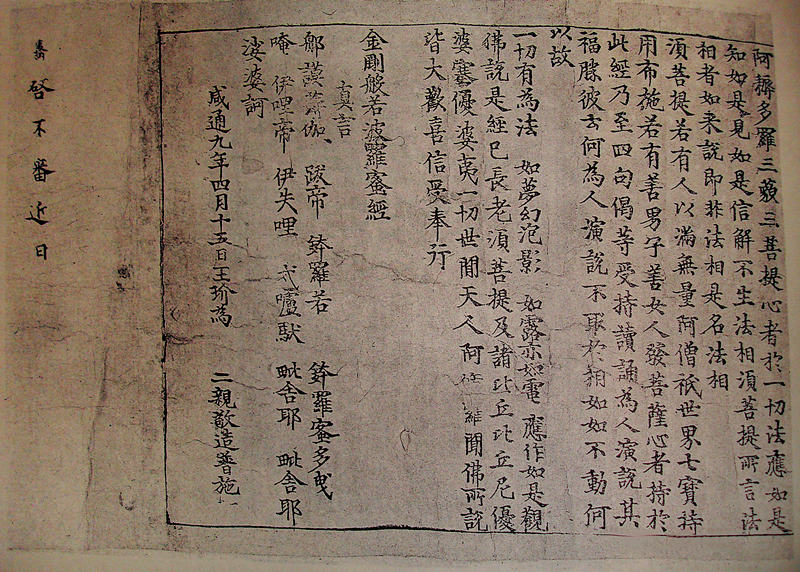 阿耨多羅三藐三菩提心者於一切法應如是
知如是見如是信解不生法相湏菩提所言法
相者如来說即非法相是名法相
湏菩提若有人以滿無量阿僧祇世界七寶持
用布施若有善男子善女人發菩薩心者持於
此經乃至四句偈等受持讀誦為人演說其
福勝彼云何為人演說不取於相如如不動何
以故
一切有為法 如夢幻泡影 如露亦如電 應作如是觀
佛說是經已長老湏菩提及諸比丘比丘尼優
婆塞優婆夷一切世間天人阿聞佛所說
皆大歡喜信受奉行
金剛般若波羅蜜經
真言
那謨薄伽、跋帝 鉢羅若 鉢羅蜜多曳
唵 伊哩帝 伊失哩 戍嚧馱 毗舍耶 毗舍耶
娑婆訶
咸通九年四月十五日王玠為 二親敬造普施
啓不審近日